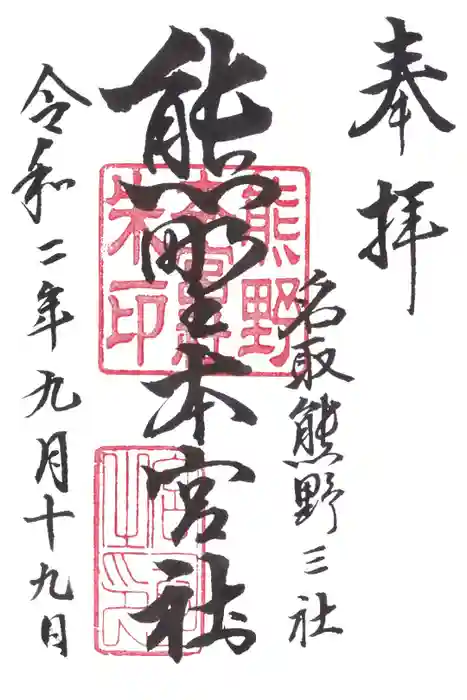 奉拝
名取熊野三社
熊野本宮社
令和二年九月十九日
熊野
本宮社
朱印